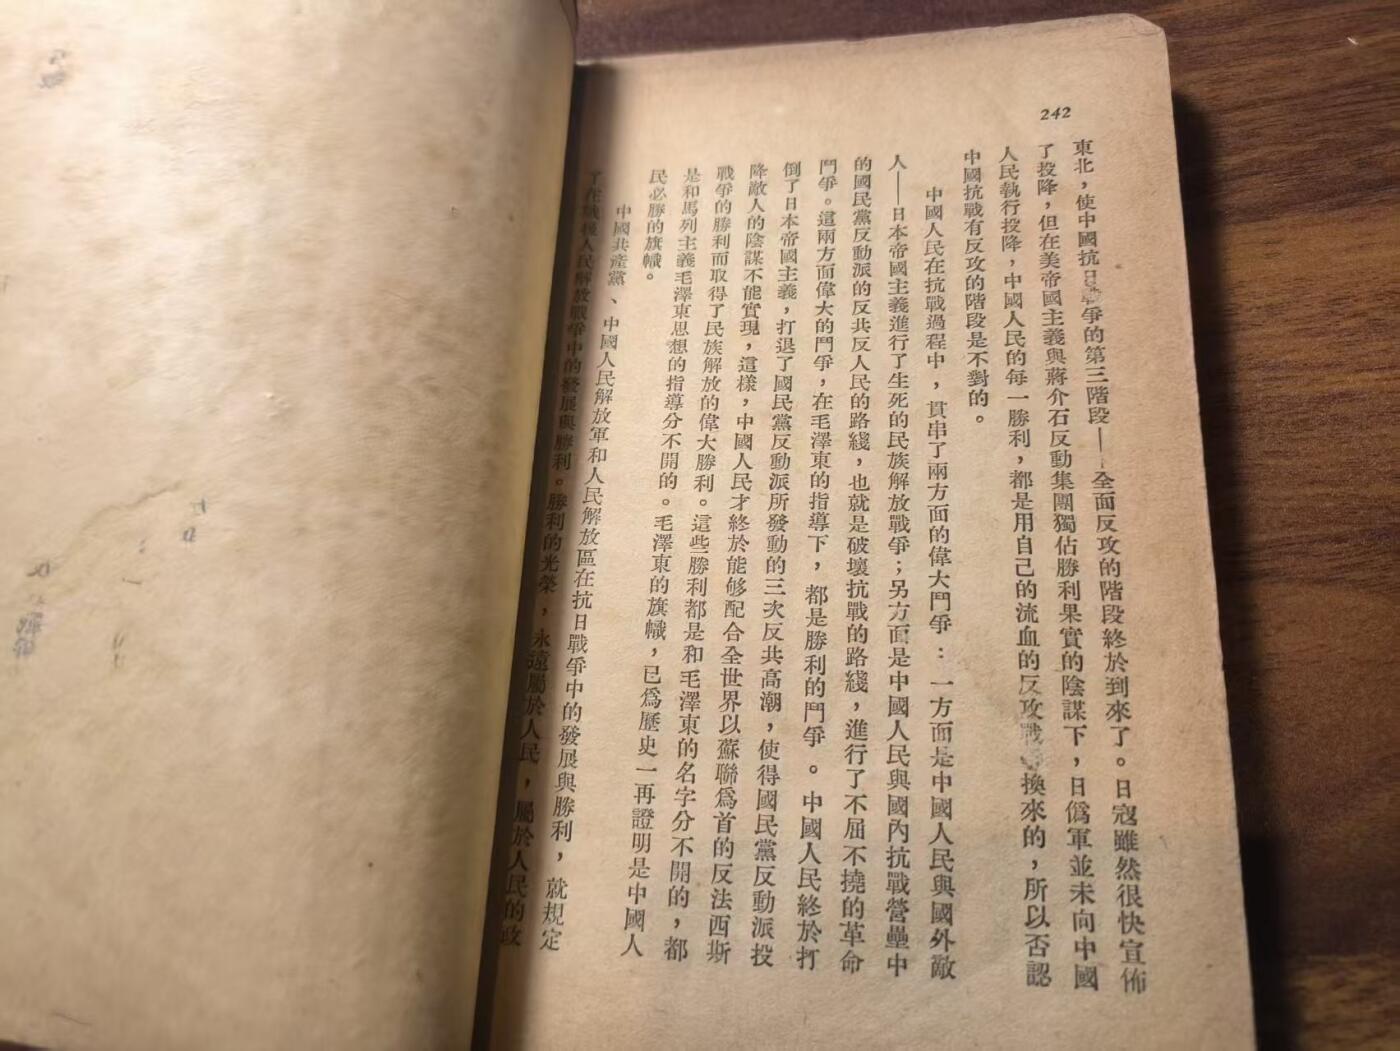 242
東北，使中國抗日戰爭的第三階段——全面反攻的階段終於到來了。日寇雖然很快宣佈
了投降，但在美帝國主義與蔣介石反動集團獨佔勝利果實的陰謀下，日僞軍並未向中國
人民執行投降，中國人民的每一勝利，都是用自己的流血的反攻戰爭換來的，所以否認
中國抗戰有反攻的階段是不對的。
中國人民在抗戰過程中，貫串了兩方面的偉大鬥爭：一方面是中國人民與國外敵
人——日本帝國主義進行了生死的民族解放戰爭；另方面是中國人民與國內抗戰營壘中
的國民黨反動派的反共反人民的路綫，也就是破壞抗戰的路綫，進行了不屈不撓的革命
鬥爭。這兩方面偉大的鬥爭，在毛澤東的指導下，都是勝利的鬥爭。中國人民終於打
倒了日本帝國主義，打退了國民黨反動派所發動的三次反共高潮，使得國民黨反動派投
降敵人的陰謀不能實現，這樣，中國人民才終於能够配合全世界以蘇聯爲首的反法西斯
戰爭的勝利而取得了民族解放的偉大勝利。這些勝利都是和毛澤東的名字分不開的，都
是和馬列主義毛澤東思想的指導分不開的。毛澤東的旗幟，已爲歷史一再證明是中國人
民必勝的旗幟。
中國共產黨、中國人民解放軍和人民解放區在抗日戰爭中的發展與勝利，就規定
了在戰後人民解放戰爭中的發展與勝利。勝利的光榮，永遠屬於人民，屬於人民的